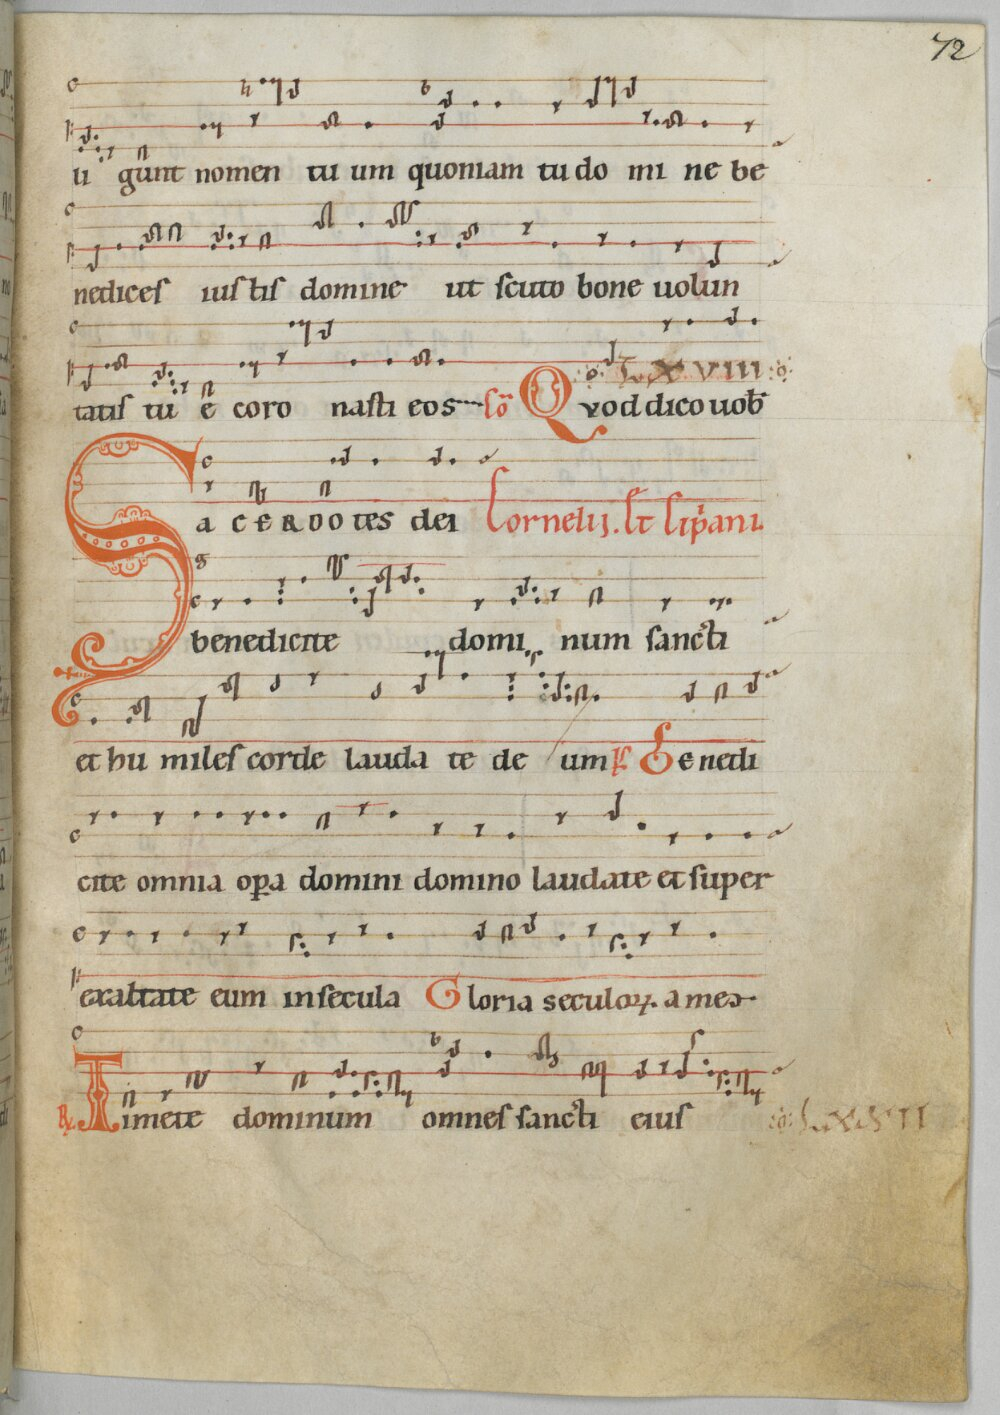 72
li gunt nomen tu um quoniam tu do mi ne be
nedices ius tis domine ut scuto bone uolun
LXVIII
tatis tu e coro nasti eos cō Quod dico uob
SACERDOTES dei Cornelij. Et Cip̄ani.
benedicite domi num sancti
et hu miles corde lauda te de um Benedi
cite omnia opa domini domino laudate et super
exaltate eum in secula Gloria seculoꝝ. amen
℟ Timete dominum omnes sancti eius